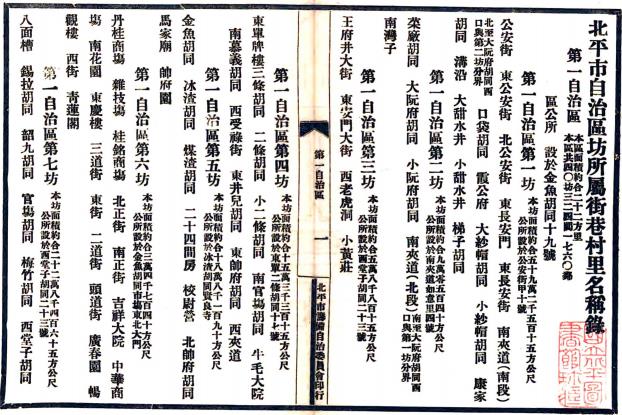 北平市自治區坊所屬街巷村里名稱錄
第一自治區
本區面積約合二十二方里
區公所 設於金魚胡同十九號
第一自治區第一坊
公所設於公安街甲十號
公安街 東公安街 北公安街 東長安門 東長安街 南夾道(南段)
北至大阮府胡同西口與第二坊分界
口袋胡同 霞公府 大紗帽胡同 小紗帽胡同 康家
胡同 溝沿 大甜水井 小甜水井 梯子胡同
第一自治區第二坊
本坊面積約合九萬零五百四十方公尺
公所設於南夾道如意里四號
菜廠胡同 大阮府胡同 小阮府胡同 南夾道(北段)
南至大阮府胡同西口與第一坊分界
南灣子
第一自治區第三坊
王府井大街 東安門大街 西老虎洞 小黃莊
第一自治區
一
北平市籌備自治委員會印行
第一自治區第四坊
本坊面積約合十五萬三千三百十五方公尺
公所設於東單二條胡同十七號
東單牌樓三條胡同 二條胡同 小二條胡同 南官場胡同 牛毛大院
南墓義胡同 西受祿街 東井兒胡同 東帥府胡同 西夾道
第一自治區第五坊
本坊面積約合十八萬八千一百九十方公尺
公所設於冰渣胡同賢良寺
金魚胡同 冰渣胡同 煤渣胡同 二十四間房 校尉營 北帥府胡同
馬家廟 帥府園
第一自治區第六坊
本坊面積約合三萬四千七百四十方公尺
公所設於金魚胡同市場東北大門
丹桂商場 雜技場 桂銘商場 北正街 南正街 吉祥大院 中華商
場 南花園 東慶樓 三道街 東街 二道街 頭道街 廣春園 暢
觀樓 西街 青蓮閣
第一自治區第七坊
本坊面積約合二十二萬八千四百六十五方公尺
公所設於西堂子胡同二十三號
八面槽 錫拉胡同 韶九胡同 官場胡同 梅竹胡同 西堂子胡同